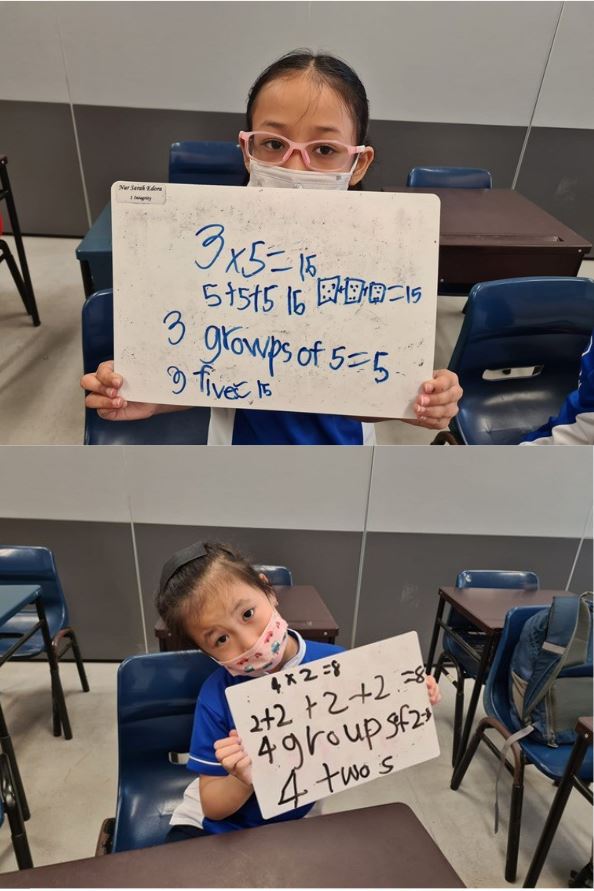 Nur Sarah Edora
1 Integrity
3 x 5 = 15
5+5+5 15 + + = 15
3 growps of 5 = 5
3 fives 15
4 x 2 = 8
2+2 + 2 + 2 = 8
4 groups of 2
4 twos